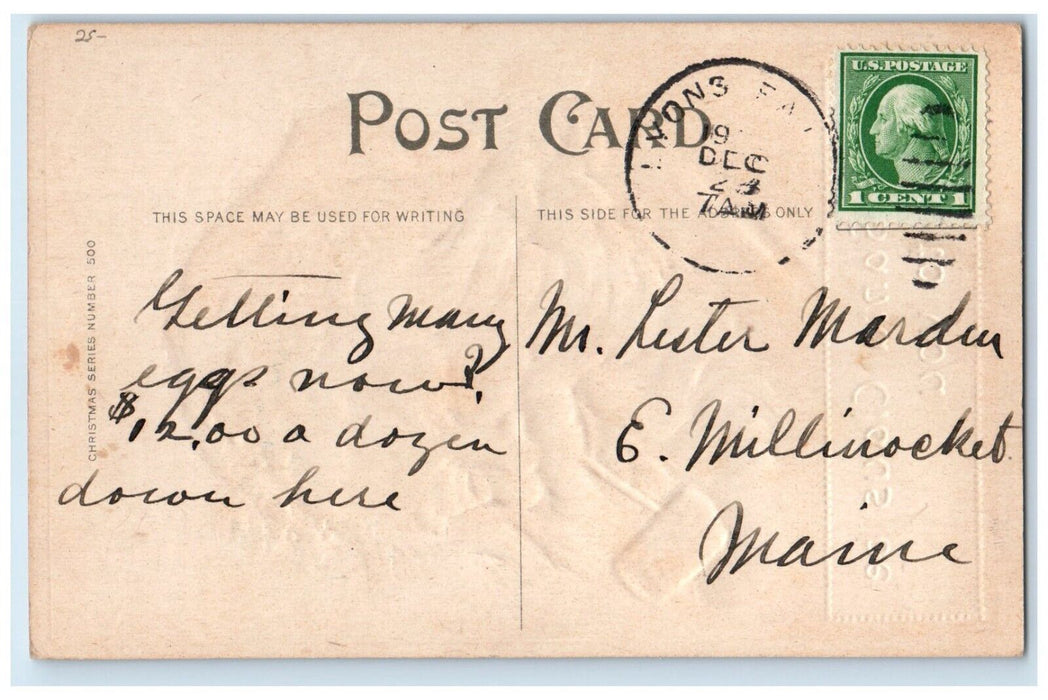 25-
POST CARD
U.S. POSTAGE
1 CENT 1
LYONS FA
19
DEC
23
7 AM
THIS SPACE MAY BE USED FOR WRITING
THIS SIDE FOR THE ADDRESS ONLY
CHRISTMAS SERIES NUMBER 500
Getting many
eggs now?
$12.00 a dozen
down here
Mr. Lester Marden
E. Millinocket
Maine